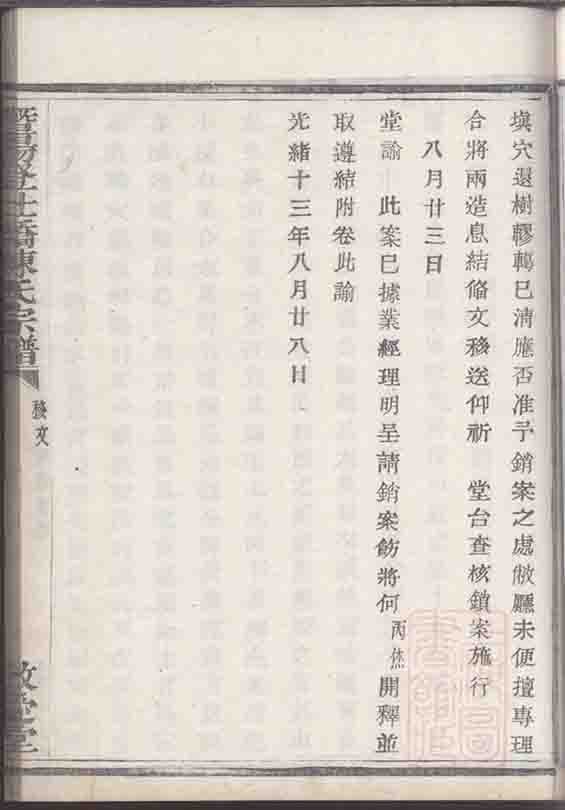 塡穴還樹轇轕已淸應否准予銷案之處敝廳未便擅專理
合將兩造息結俻文移送仰祈　堂台查核鎖案施行
八月廿三日
堂諭　此案已據業經理明呈請銷案飭將何丙㷊開釋並
取遵結附卷此諭
光緖十三年八月廿八日
暨陽登仕橋陳氏宗譜
移文
敦愛堂